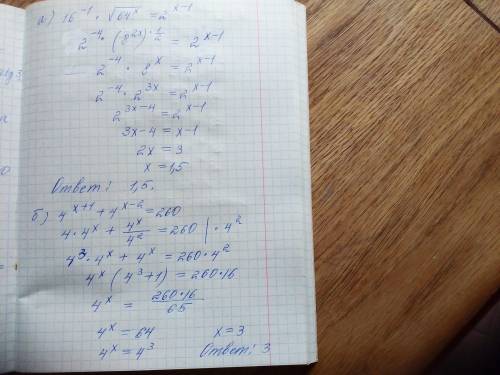 а) 16⁻¹ · √64ˣ = 2ˣ⁻¹
2⁻⁴ · (8²ˣ)^½ = 2ˣ⁻¹
2⁻⁴ · 8ˣ = 2ˣ⁻¹
2⁻⁴ · 2³ˣ = 2ˣ⁻¹
2³ˣ⁻⁴ = 2ˣ⁻¹
3x-4 = x-1
2x = 3
x = 1,5
Ответ: 1,5.
б) 4ˣ⁺¹ + 4ˣ⁻² = 260
4 · 4ˣ + 4ˣ/4² = 260 | · 4²
4³ · 4ˣ + 4ˣ = 260 · 4²
4ˣ (4³+1) = 260·16
4ˣ = 260·16/65
4ˣ = 64 x = 3
4ˣ = 4³ Ответ: 3